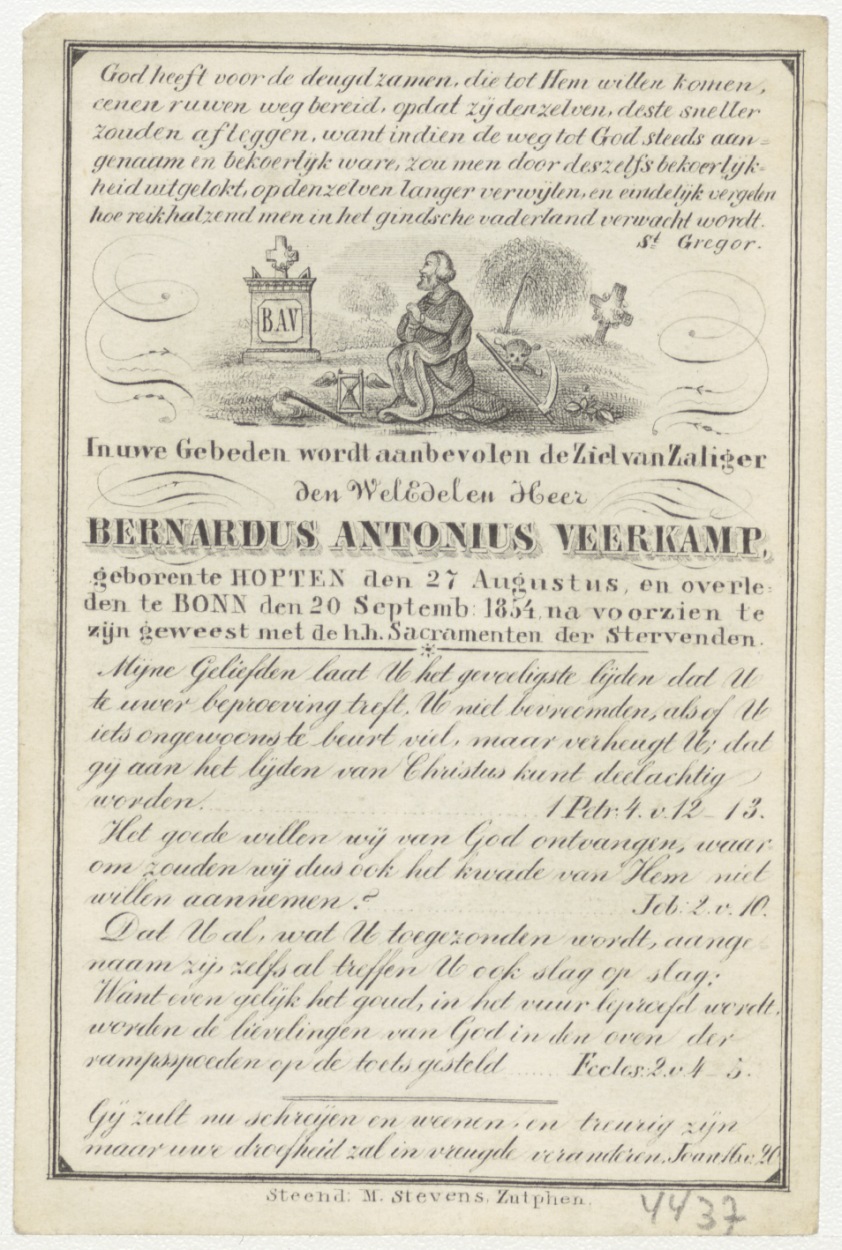 God heeft voor de deugdzamen, die tot Hem willen komen,
eenen ruwen weg bereid, opdat zij denzelven, deste sneller
zouden afleggen, want indien de weg tot God steeds aan=
genaam en bekoerlijk ware, zou men door deszelfs bekoerlijk=
heid uitgelokt, op denzelven langer verwijlen, en eindelijk vergeten
hoe reikhalzend men in het gindsche vaderland verwacht wordt.
St Gregor.
B.A.V
In uwe Gebeden wordt aanbevolen de Ziel van Zaliger
den WelEdelen Heer
BERNARDUS ANTONIUS VEERKAMP,
geboren te HOPTEN den 27 Augustus, en overle=
den te BONN den 20 Septemb: 1854, na voorzien te
zijn geweest met de h.h. Sacramenten der Stervenden.
Mijne Geliefden laat U het gevoeligste lijden dat U
te uwer beproeving treft, U niet bevreemden, als of U
iets ongewoons te beurt viel, maar verheugt U; dat
gij aan het lijden van Christus kunt deelachtig
worden. 1 Petr: 4. v. 12 – 13.
Het goede willen wij van God ontvangen, waar
om zouden wij dus ook het kwade van Hem niet
willen aannemen? Job: 2. v. 10.
Dat U al, wat U toegezonden wordt, aange
naam zij, zelfs al treffen U ook slag op slag;
Want even gelijk het goud, in het vuur beproefd wordt,
worden de lievelingen van God in den oven der
rampsspoeden op de toets gesteld ...... Eccles: 2. v. 4 – 5.
Gij zult nu schreijen en weenen, en treurig zijn
maar uwe droefheid zal in vreugde veranderen, Joan 16. v. 20
Steend: M. Stevens, Zutphen.
4437